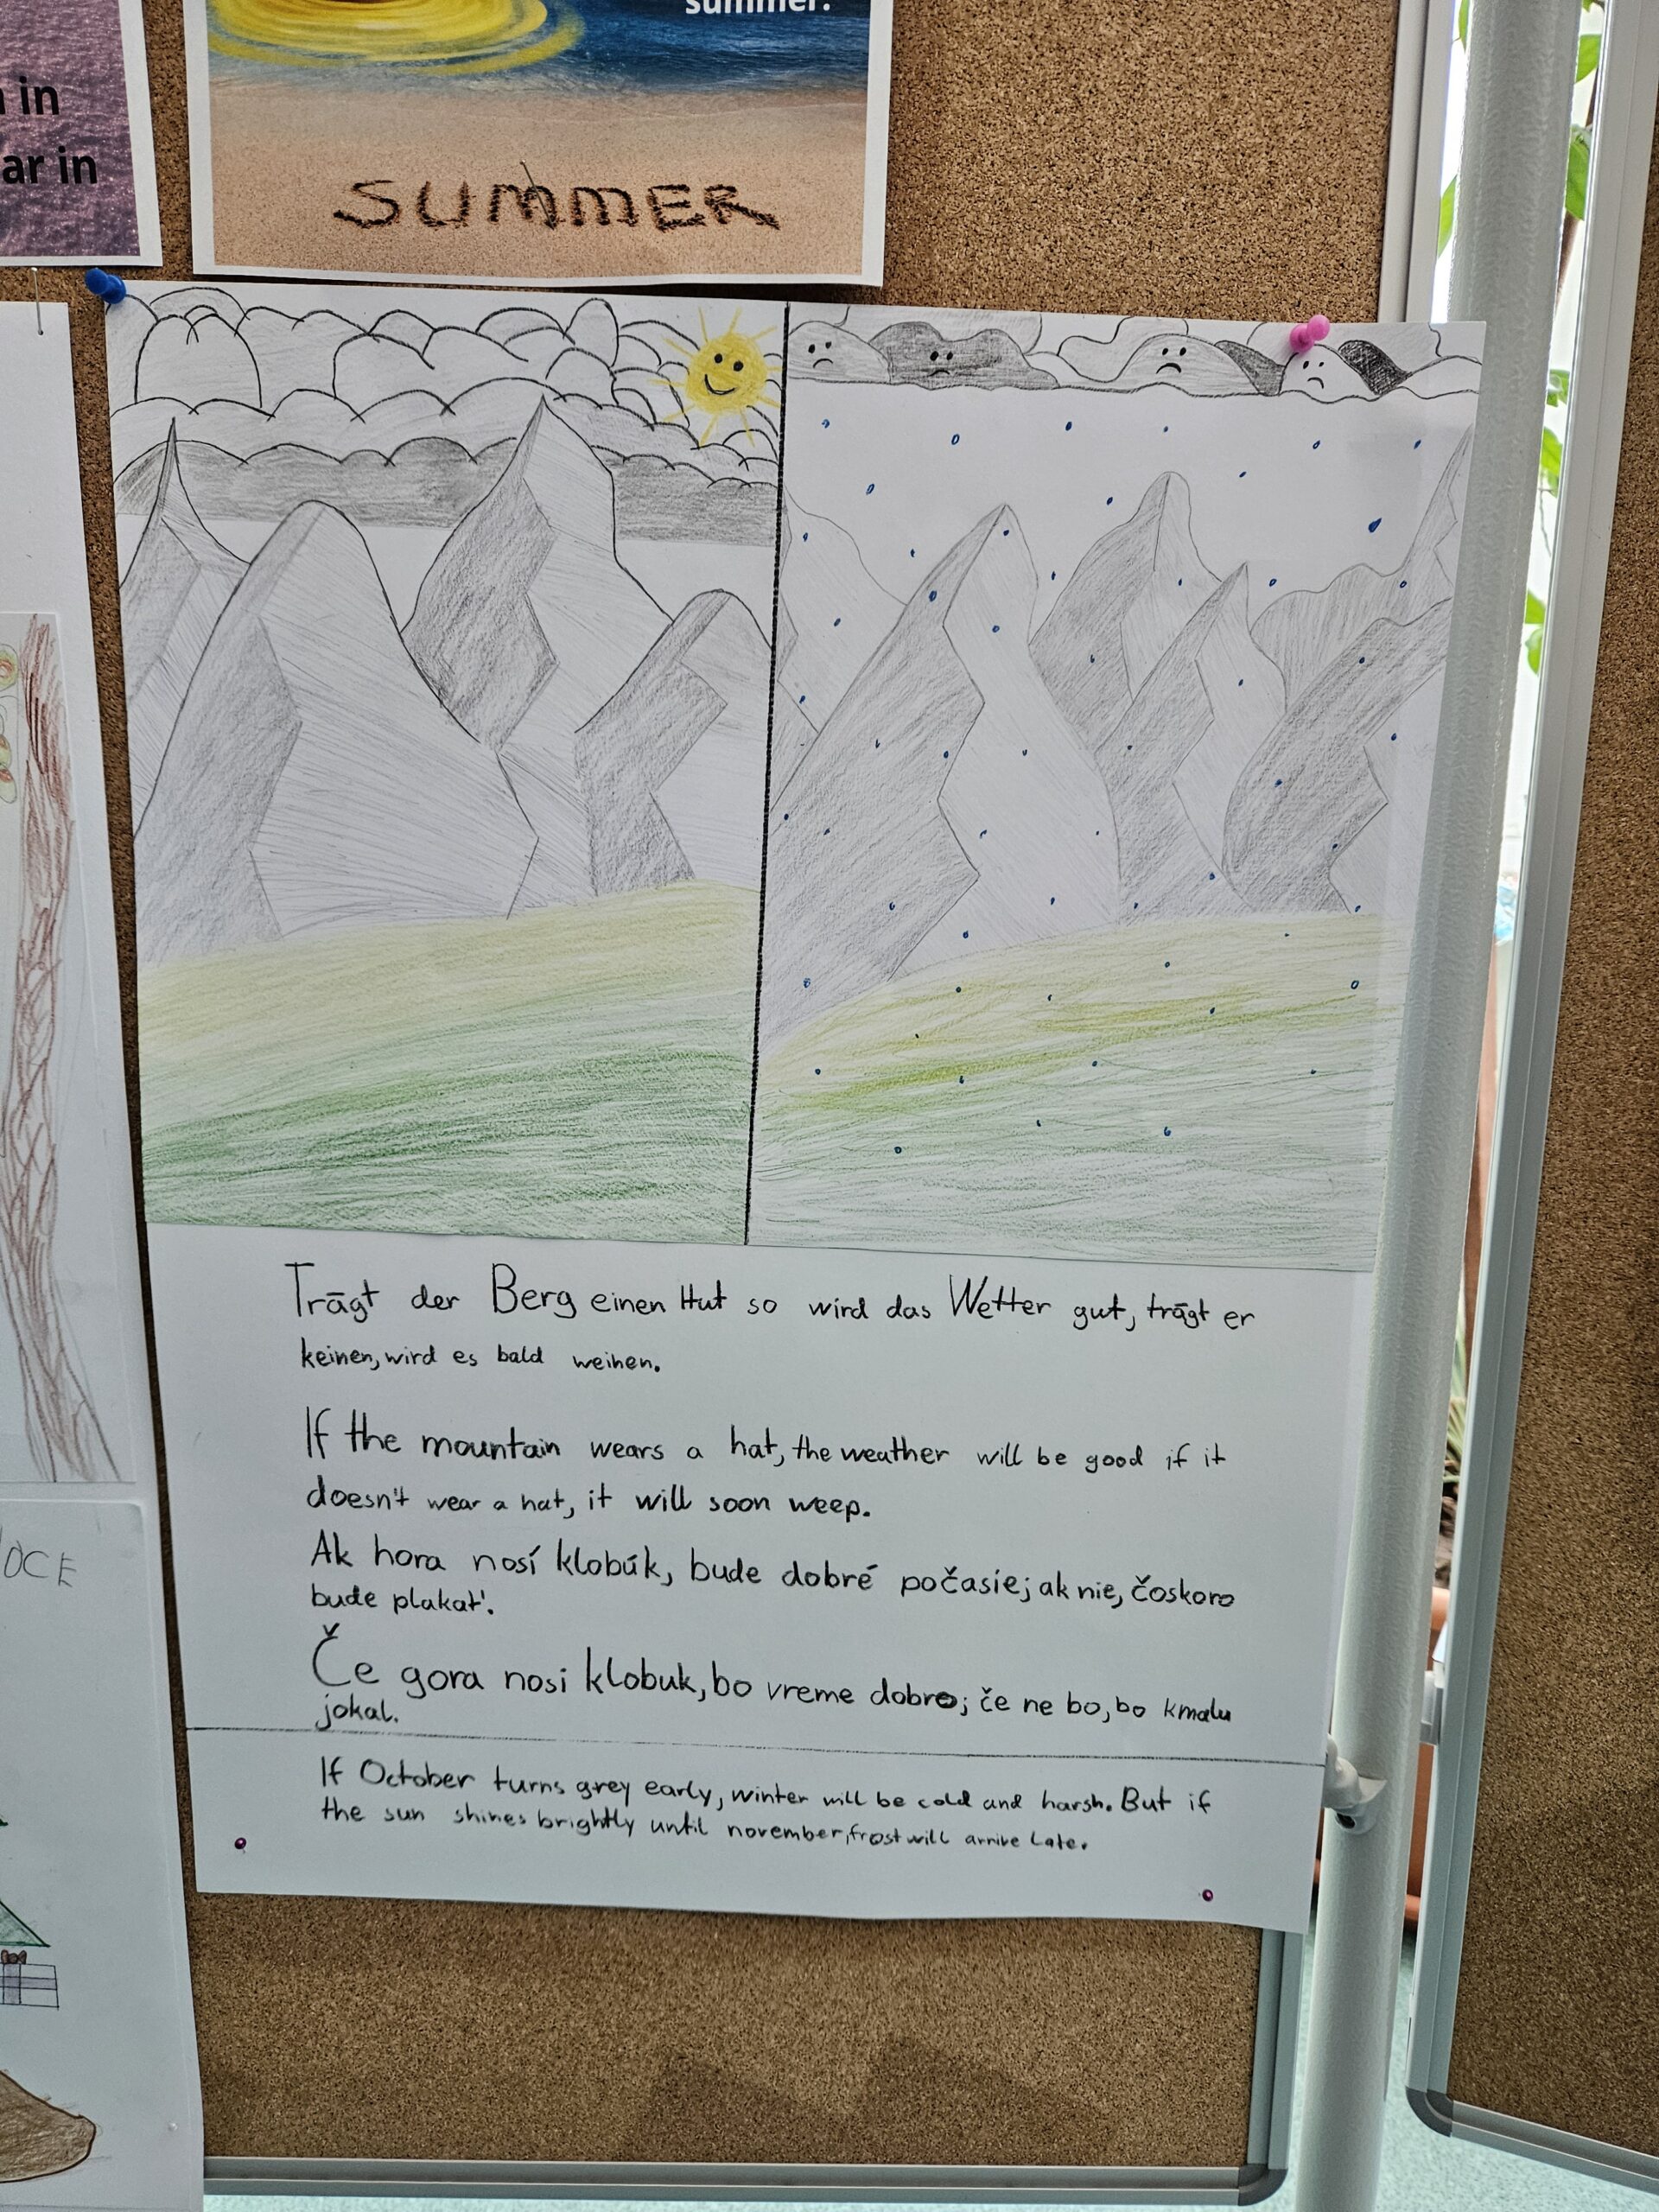 summer.
in
ar in
SUMMER
Trägt der Berg einen Hut so wird das Wetter gut, trägt er
keinen, wird es bald weihen.
If the mountain wears a hat, the weather will be good if it
doesn't wear a hat, it will soon weep.
Ak hora nosí klobúk, bude dobré počasie; ak nie, čoskoro
bude plakať.
Če gora nosi klobuk, bo vreme dobro; če ne bo, bo kmalu
jokal.
If October turns grey early, winter will be cold and harsh. But if
the sun shines brightly until november, frost will arrive late.
OCE